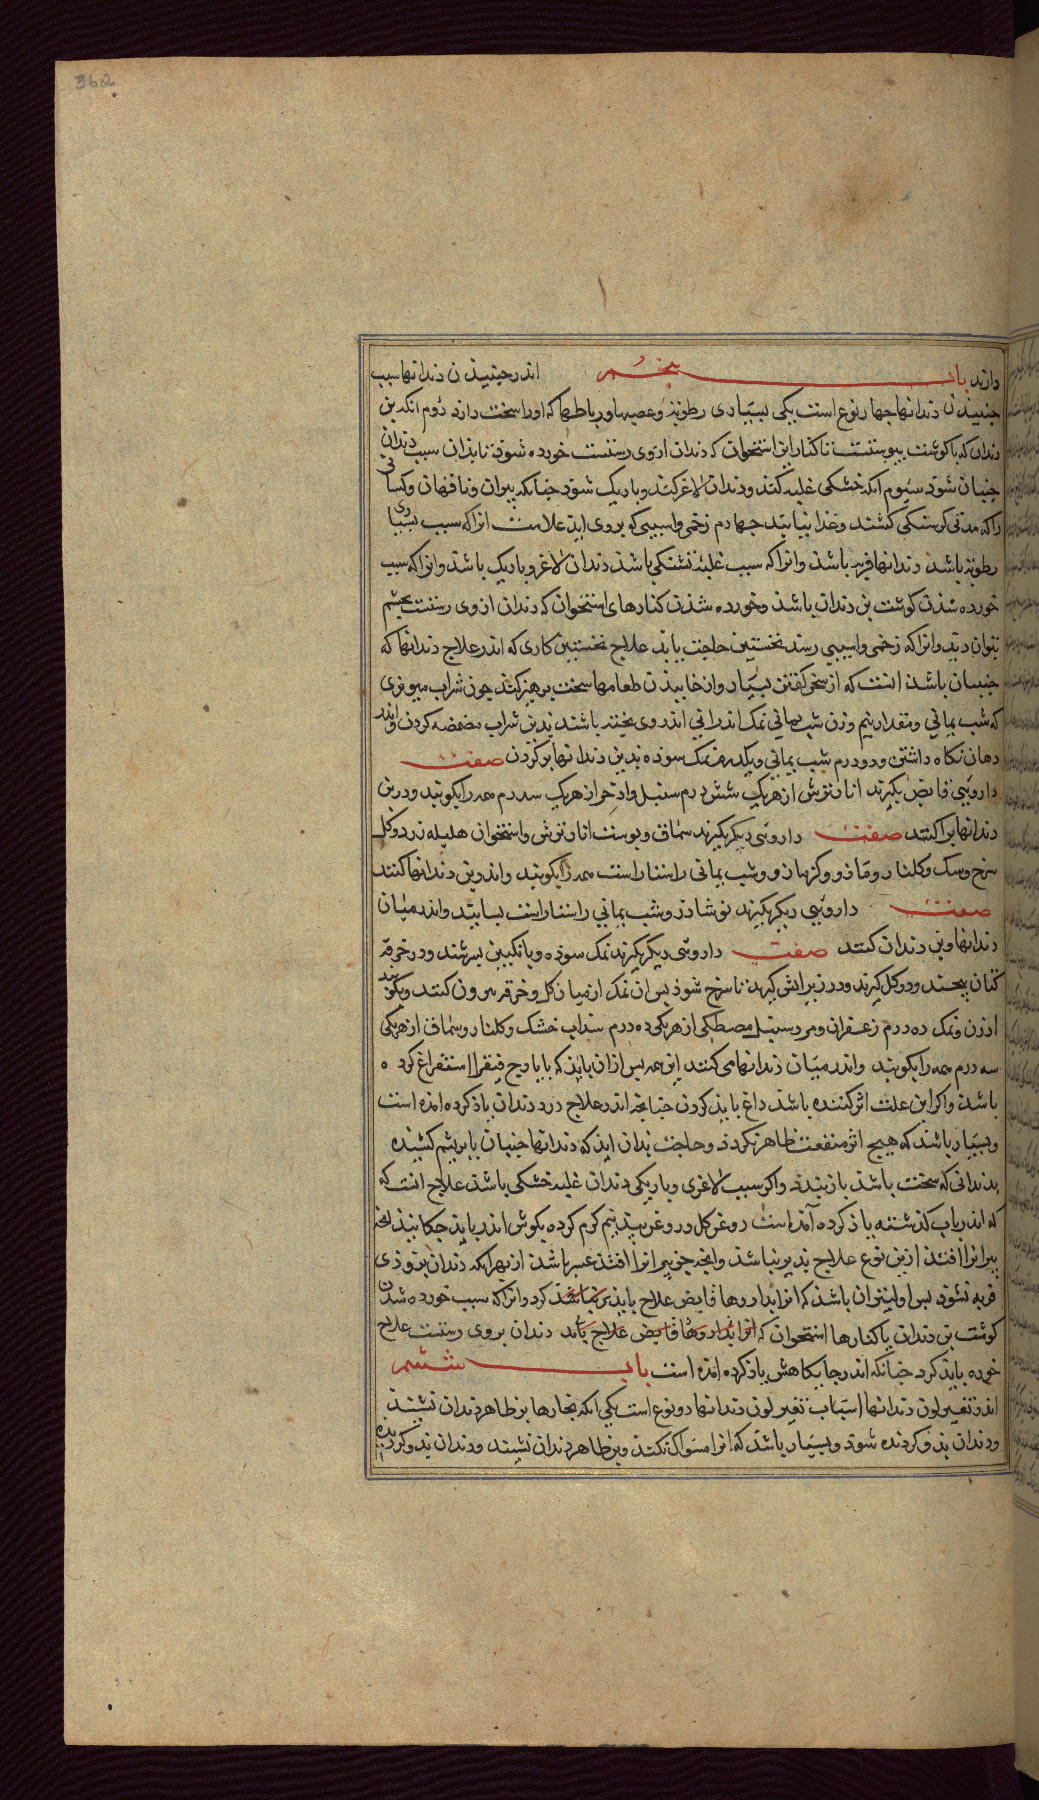 362
دارند باب پنجم اندر جنبیذن دندانها سبب
جنبیذن دندانها چهار نوع است یکی بسیاری رطوبة وعصبها ورباطها که اورا سخت دارد دوم انکه بن
دندان که با کوشت پیوستست تا کنار این استخوان که دندان ازوی رستست خورده شوذ تا بذان سبب دندان
جنبان شوذ سیوم انکه خشکی غلبه کند ودندان لاغر کند وباریک شوذ چنانکه پیران وناقهان وکسانی
را که مدتی کرسنکی کشند وغذا نیابند چهارم زخمی واسیبی که بروی اید علامت انرا که سبب بسیاری
رطوبة باشذ دندانها فربه باشذ وانرا که سبب غلبۀ خشکی باشذ دندان لاغر وباریک باشذ وانرا که سبب
خورده شذن کوشت بن دندان باشذ وخورده شذن کنارهای استخوان که دندان ازوی رستست بچشم
بتوان دید وانرا که زخمی واسیبی رسد نخستین حاجت یابد علاج نخستین کاری که اندر علاج دندانها که
جنبان باشذ انست که از سخن کفتن بسیار واز خاییذن طعامها سخت پرهیز کند چون شراب میویزی
که شب یمانی ومقدار نیم وزن شب یمانی نمک اندرانی اندروی پخته باشند بدین شراب مضمضه کردن واندر
دهان نکاه داشتن ودو درم شب یمانی ویکدرم نمک سوذه بذین دندانها برکردن صفت
داروئی قابض بکیرند انار ترش از هریک شش درم سنبل واذخر از هریک سه درم همه را بکوبند ودر بن
دندانها پراکنند صفت داروئی دیکر بکیرند سماق وپوست انار ترش واستخوان هلیله زرد وکل
سرخ وسک وکلنار ومازو وکزمازو وشب یمانی راستاراست همه را بکوبند واندر بن دندانها کنند
صفت داروئی دیکر بکیرند نوشادر وشب یمانی راستاراست بسایند واندر میان
دندانها وبن دندان کنند صفت داروئی دیکر بکیرند نمک سوذه وبانکبین بسرشند ودر خرقه
کتان پیچند ودر کل کیرند ودر زیر اتش کیرند تا سرخ شوذ پس ان نمک از میان کل وخرقه بیرون کنند وبکوبند
ازین نمک ده درم زعفران ومر وسنبل ومصطکی از هریکی ده درم سذاب خشک وکلنار وسماق از هریکی
سه درم همه را بکوبند واندر میان دندانها می کنند این همه پس ازان بایذ که بایارج فیقرا استفراغ کرده
باشذ واکر این علت اثر کننده باشذ داغ بایذ کردن چنانچه اندر علاج درد دندان یاذ کرده امذه است
وبسیار باشذ که هیچ اثر منفعت ظاهر نکردذ وحاجت بدان ایذ که دندانها جنبان بابریشم کشیده
بدندانی که سخت باشذ باز بندند واکر سبب لاغری وباریکی دندان غلبه خشکی باشذ علاج انست که
که اندر باب کذشته یاذ کرده آمذ است روغن کل وروغن بید نیم کرم کرده بکوش اندر بایذ چکانیذ انچه
پیرانرا افتذ ازین نوع علاج پذیر نباشذ وانچه جز پیرانرا افتذ عسر باشذ از بهر انکه دندان بزوذی
فربه نشوذ پس اولیتر ان باشذ که انرا بداروها قابض علاج بایذ نباشذ کرد وانرا که سبب خورده شدن
کوشت بن دندان یا کنارها استخوان که انرا بداروها قابض علاج باید دندان بروی رستست علاج
خوره باید کرد چنانکه اندر جایکاهش یاذ کرده امذه است باب ششم
اندر تغییر لون دندانها اسباب تغییر لون دندانها دو نوع است یکی انکه بخارها بر ظاهر دندان نشیند
ودندان بذ رنک کردنده شوذ وبسیار باشذ که انرا مسواک نکنند وبر ظاهر دندان نشیند ودندان بد کردد